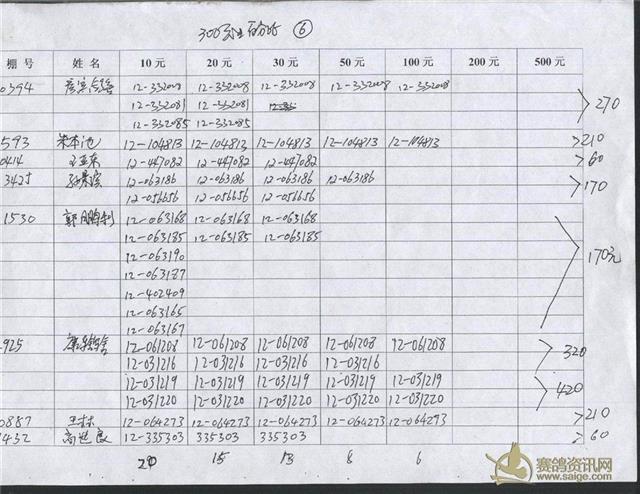 ⑥
棚号 姓名 10元 20元 30元 50元 100元 200元 500元
0394 12-332008 12-332008 12-332008 12-332008 12-332008
12-332081 12-332081 270
12-332085 12-332085
593 12-104813 12-104813 12-104813 12-104813 12-104813 >210
0414 12-447082 12-447082 12-447082 >60
3425 12-063186 12-063186 12-063186 12-063186 >170
12-056656 12-056656 12-056656
1530 郭鹏利 12-063168 12-063168 12-063168
12-063185 12-063185 12-063185
12-063190 170元
12-063187
12-402409
12-063165
12-063167
925 12-061208 12-061208 12-061208 12-061208 12-061208 320
12-031216 12-031216 12-031216 12-031216
12-031219 12-031219 12-031219 12-031219 12-031219 420
12-031220 12-031220 12-031220 12-031220 12-031220
0887 王林 12-064273 12-064273 12-064273 12-064273 12-064273 >210
1432 高进良 12-335303 335303 335303 >60
20 15 13 8 6
赛鸽资讯网
www.saige.com